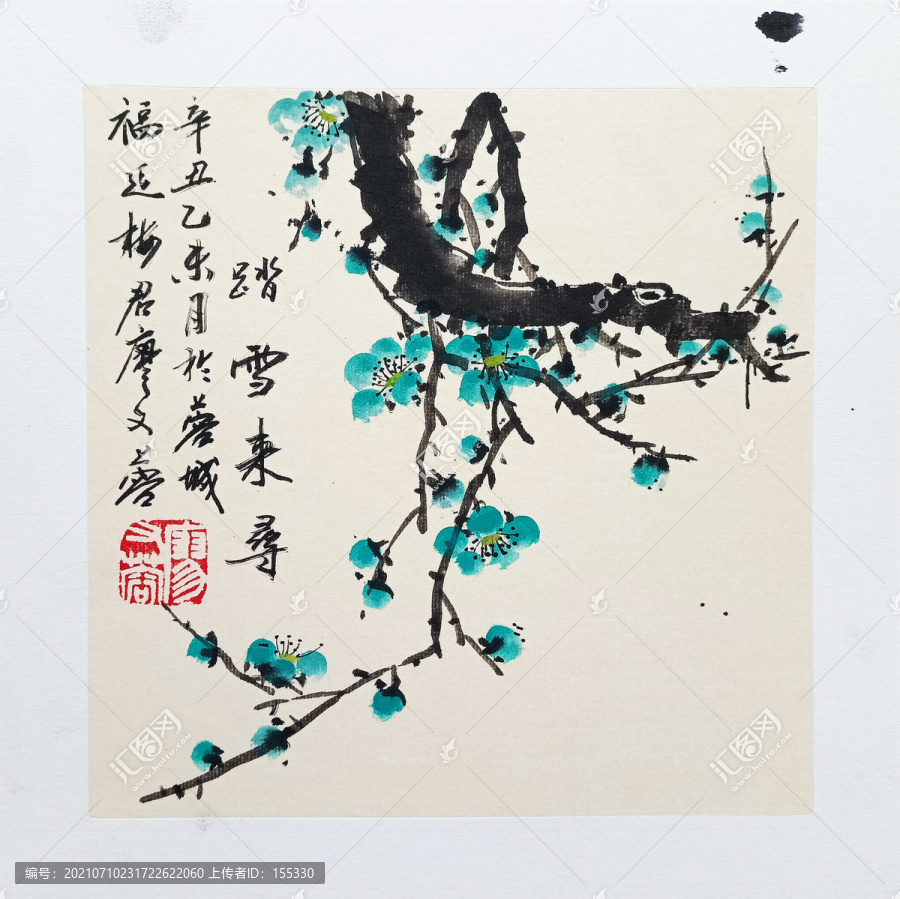 踏雪来尋
辛丑乙未月於蓉城
福延梅君廖文蓉
廖文蓉
汇图网
www.huitu.com
编号：20210710231722622060 上传者ID：155330